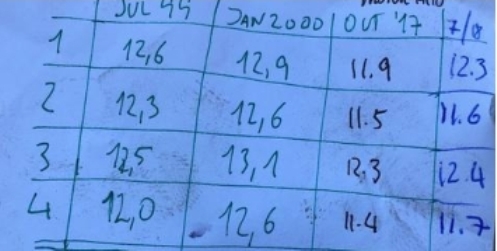 JUL 99 JAN 2000 OCT '17 7/8
1 12,6 12,9 11.9 12.3
2 12,3 12,6 11.5 11.6
3 12,5 13,1 12.3 12.4
4 12,0 12,6 11.4 11.7